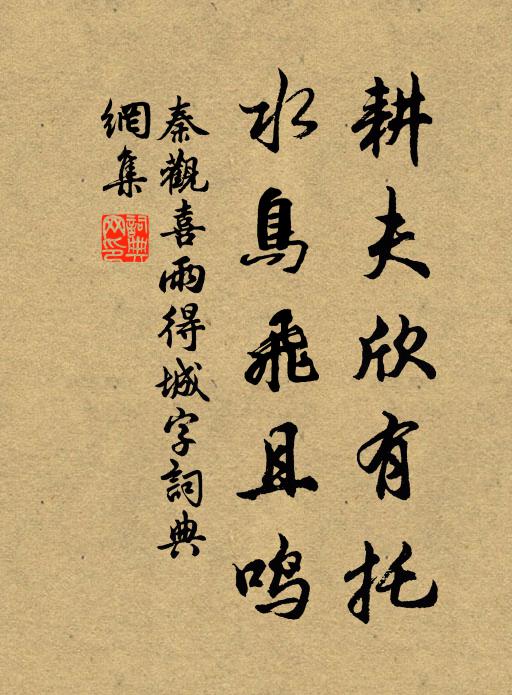 耕夫欣有托
水鳥飛且鸣
秦觀喜雨得城字詞典
網集
詞典網印